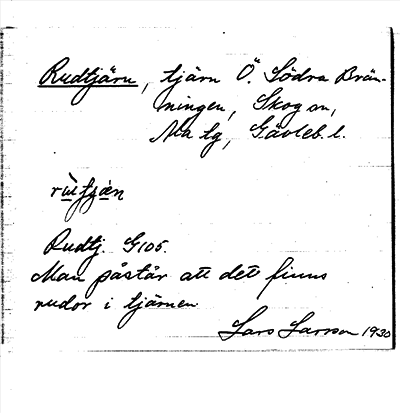 Rudtjärn, tjärn Ö. Södra Brän-
ningen, Skog sn,
Ala tg, Gävleb. l.
Rudtj. G105.
Man påstår att det finns
rudor i tjärnen
Lars Larsson 1930